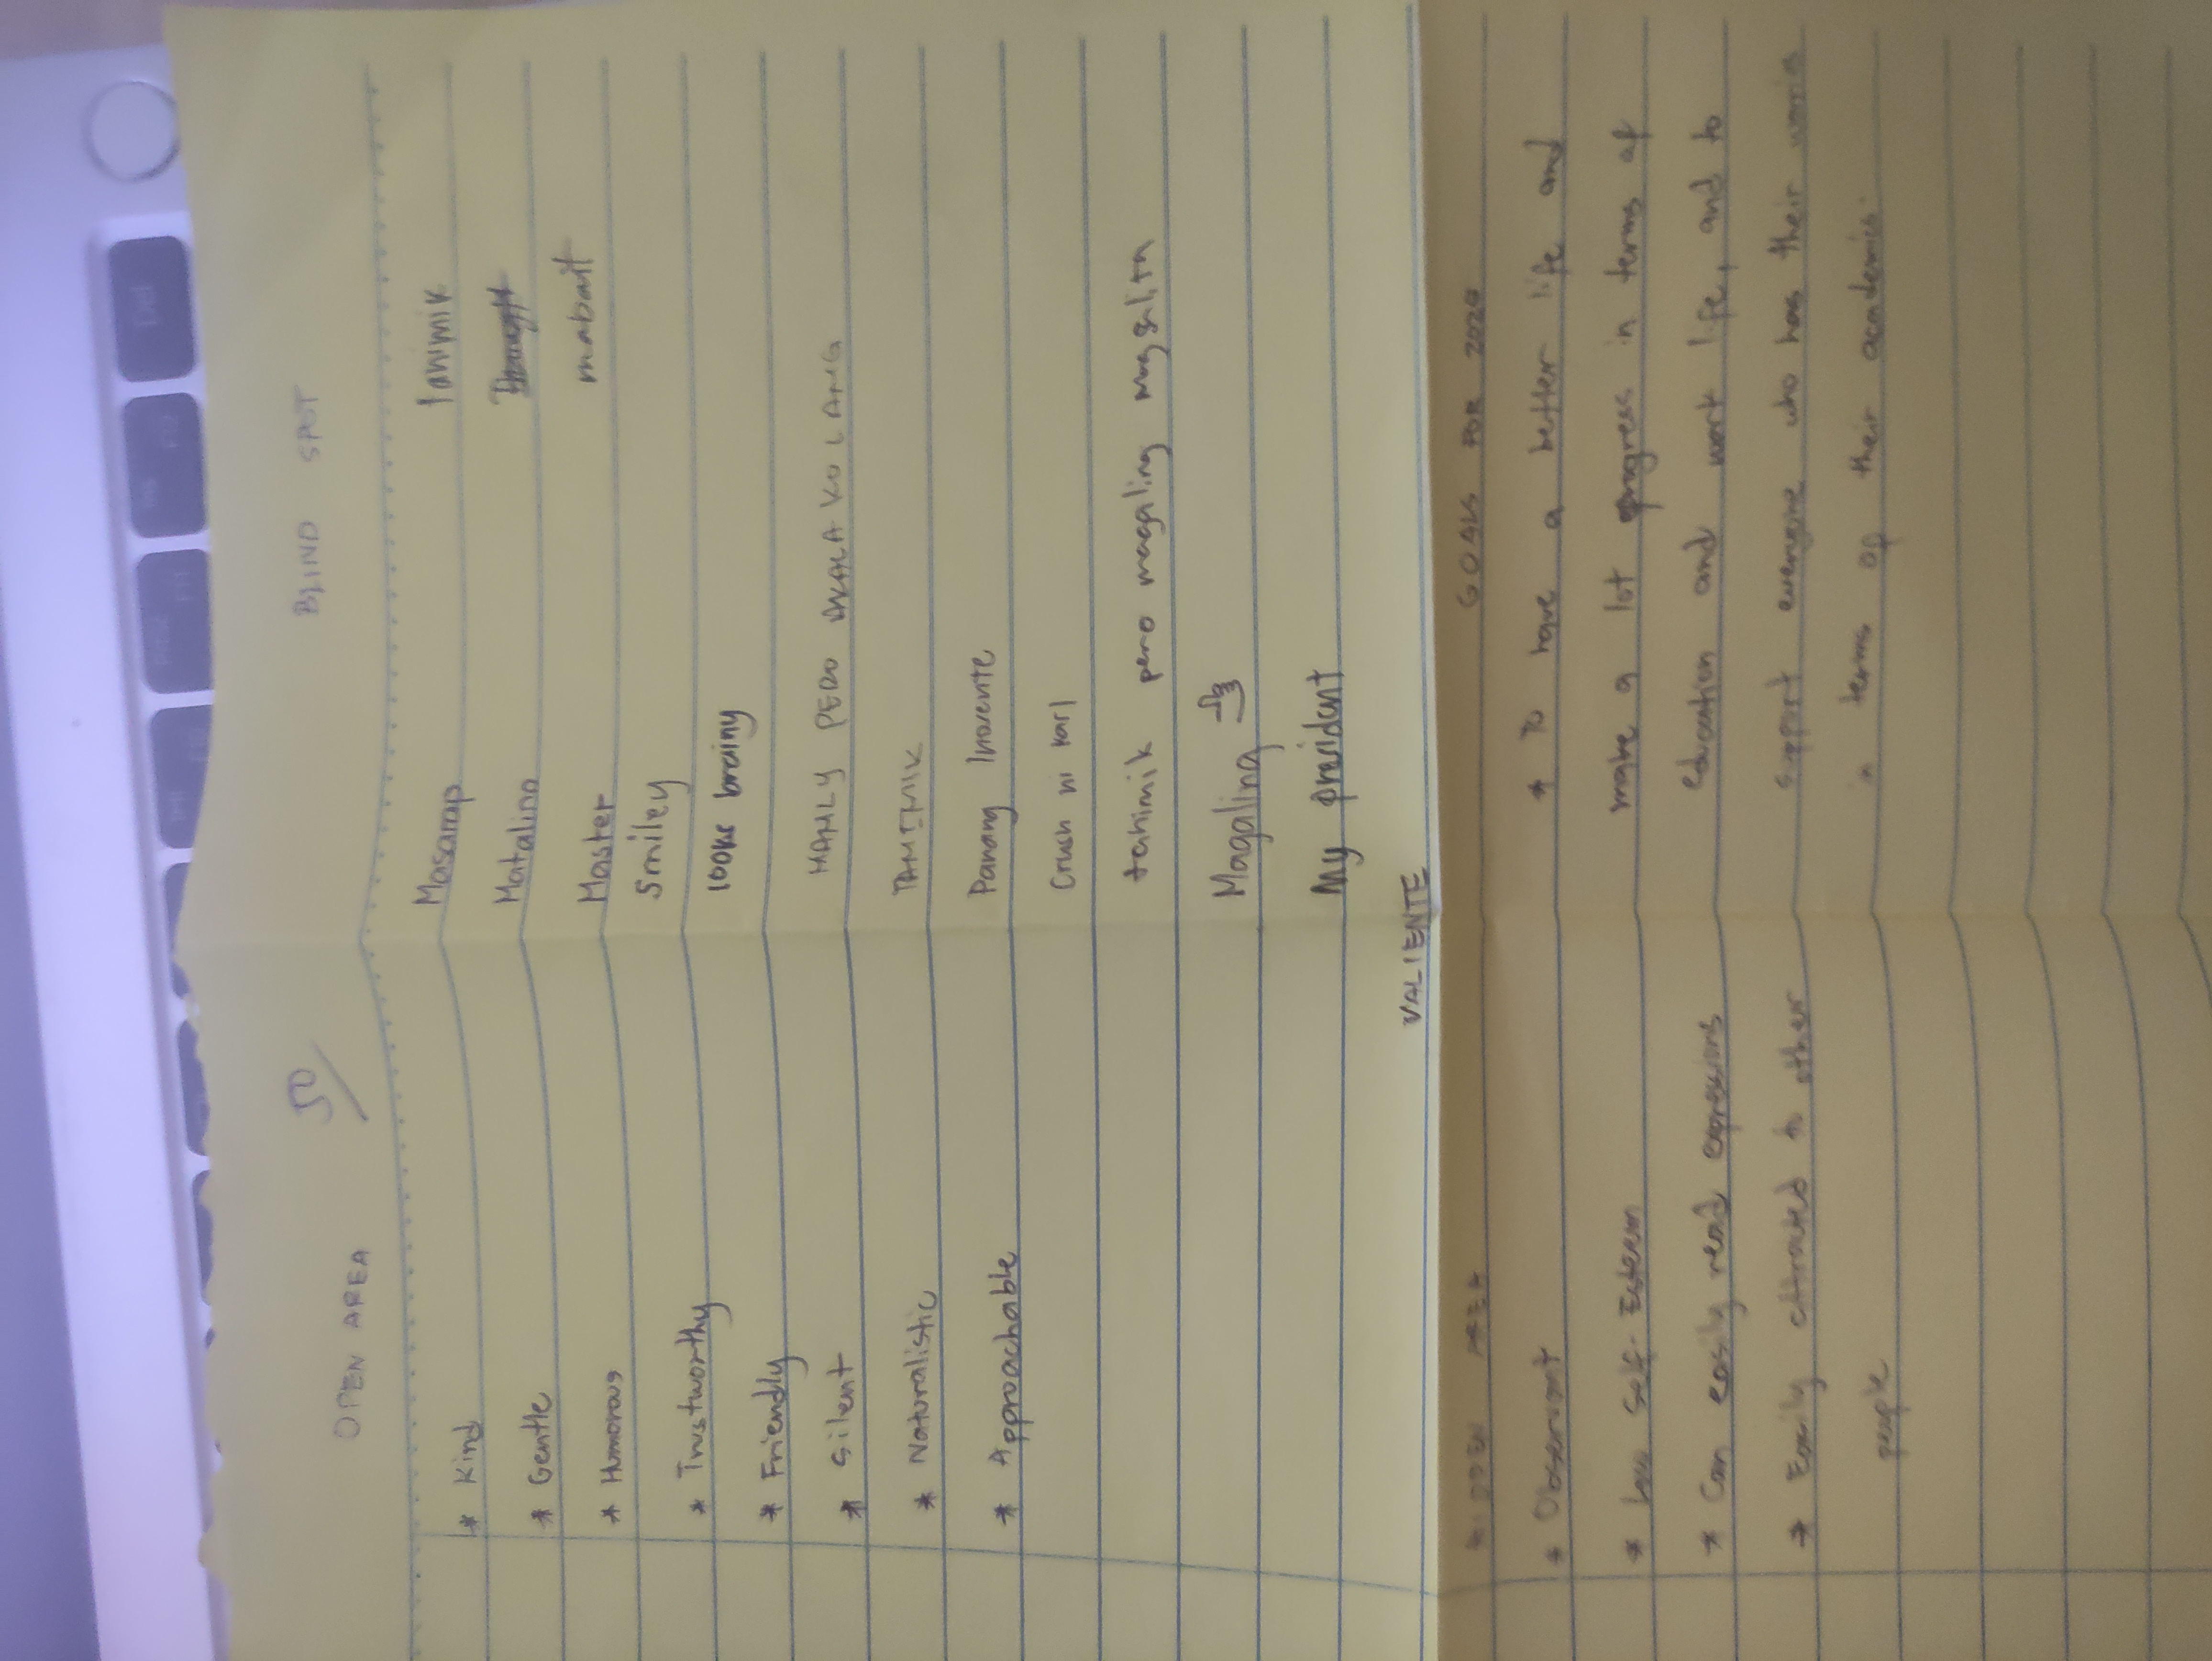 OPEN AREA
50
* Kind
* Gentle
* Humorous
* Trustworthy
* Friendly
* Silent
* Naturalistic
* Approachable
BLIND SPOT
Masarap
Matalino
Master
Smiley
looks brainy
MANLY PERO AKALA KO LANG
TAHIMIK
Parang Inosente
Crush ni Karl
tahimik pero magaling magsalita
Magaling
My president
tahimik
mabait
VALIENTE
HIDDEN AREA
* Observant
* Low Self-Esteem
* Can easily read expressions
* Easily attracted to other
people
GOALS FOR
* To have a better life and
make a lot progress in terms of
education and work life, and to
support everyone who has their worries
in terms of their academics.